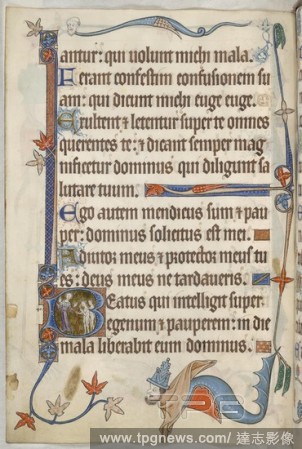 antur: qui volunt michi mala.
Ferant confestim confusionem su
am: qui dicunt michi euge euge.
Exultent & letentur super te omnes
querentes te: & dicant semper mag
nificetur dominus qui diligunt sa
lutare tuum.
Ego autem mendicus sum & pau
per: dominus solicitus est mei.
Adiutor meus & protector meus tu
es: deus meus ne tardaveris.
Beatus qui intelligit super
egenum & pauperem: in die
mala liberabit eum dominus.
TPG
www.tpgnews.com/ 達志影像